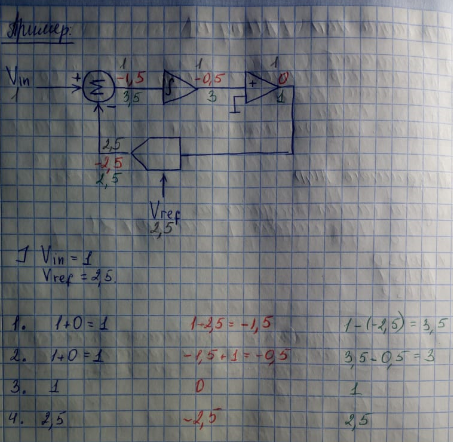 Пример.
1 1 1
Vin + Σ -1,5 ∫ -0,5 + 0
1 - 3,5 3 1
2,5
-2,5
2,5
Vref
2,5
Vin = 1
Vref = 2,5
1. 1+0=1 1-2,5=-1,5 1-(-2,5)=3,5
2. 1+0=1 -1,5+1=-0,5 3,5-0,5=3
3. 1 0 1
4. 2,5 -2,5 2,5